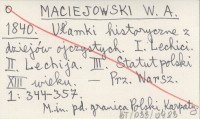 MACIEJOWSKI W. A.
1840. Ułamki historyczne z
dziejów ojczystych. I. Lechici.
II. Lechija. III. Statut polski
XIII wieku. — Prz. Warsz.
1: 344-357.
M.in. pd. granica Polski, Karpaty